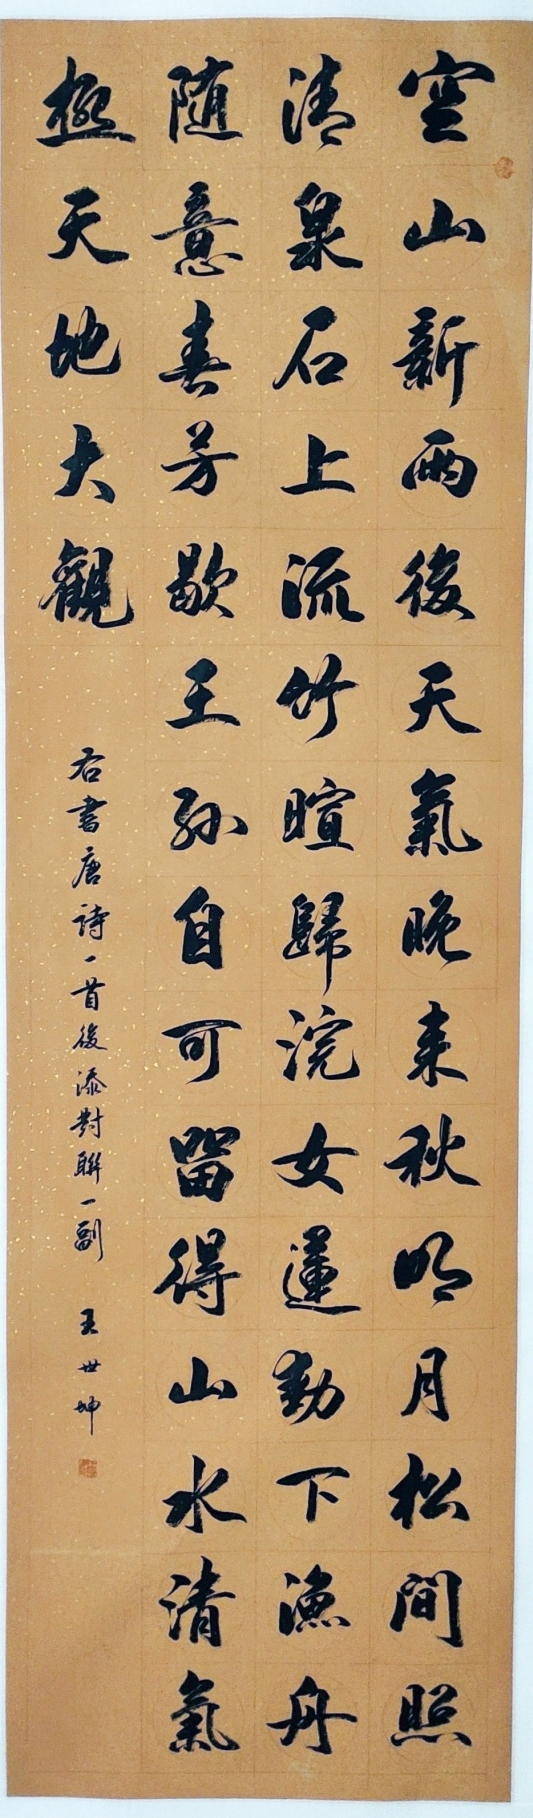 空山新雨後天氣晚来秋明月松间照
清泉石上流竹暄歸浣女蓮動下漁舟
随意春芳歇王孙自可留得山水清氣
極天地大觀
右書唐詩一首後添對聯一副 王世坤